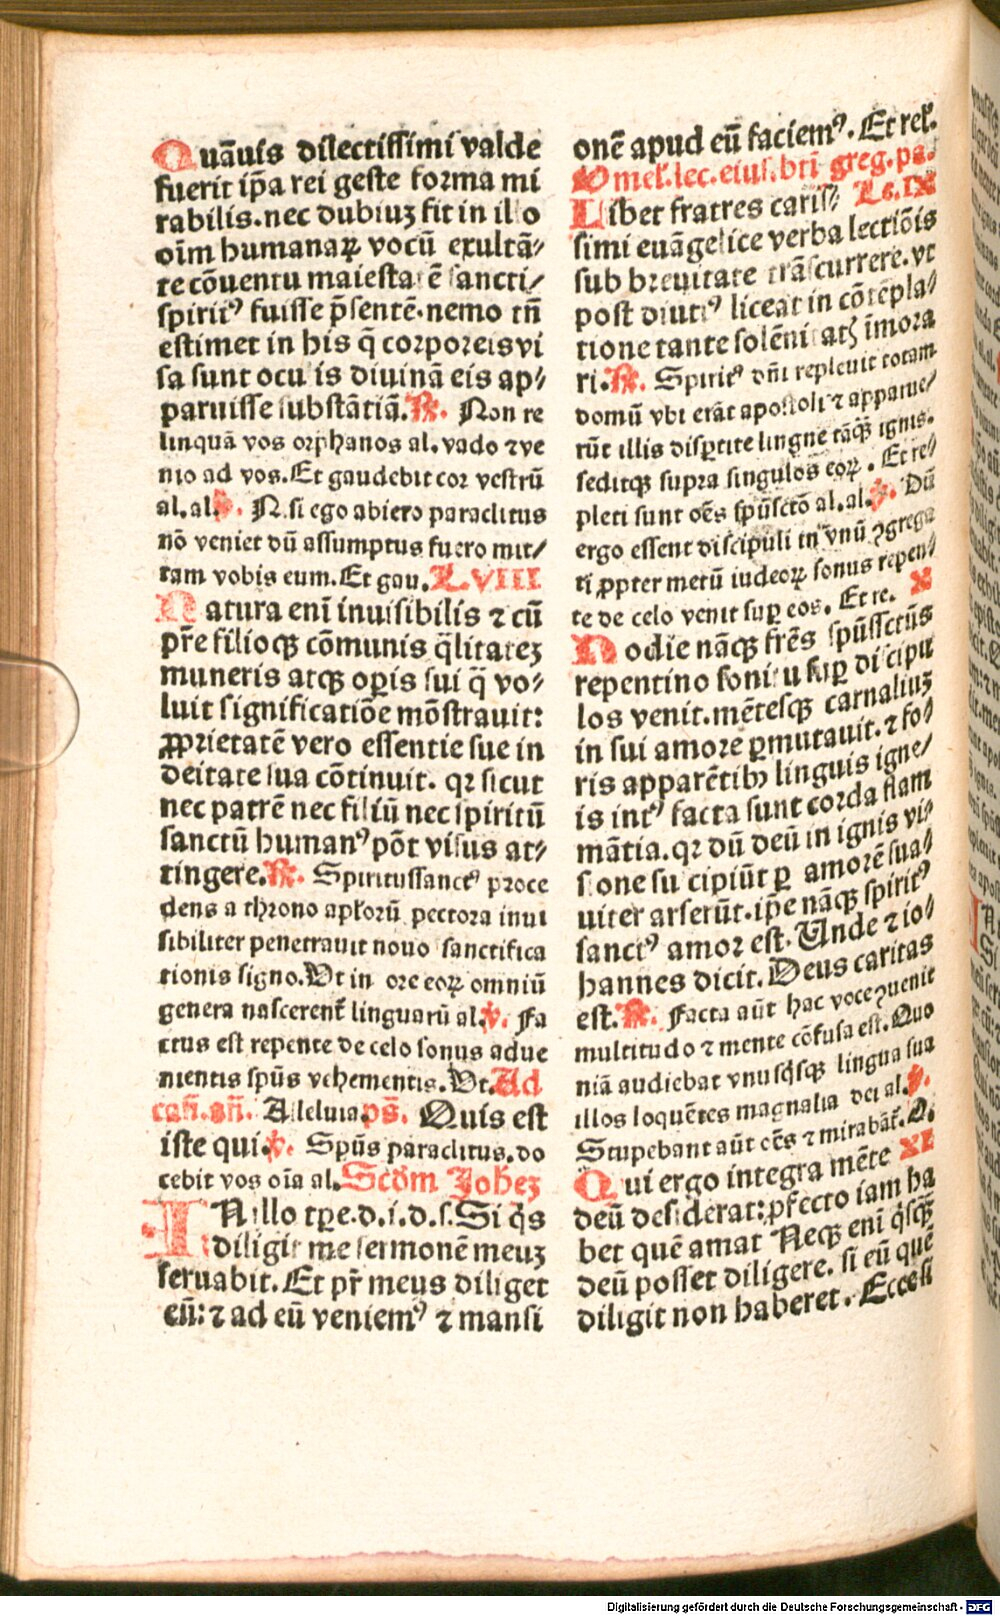 Quāuis dilectissimi valde
fuerit ip̄a rei geste forma mi
rabilis. nec dubiuꝫ sit in illo
oīm humanaꝝ vocū exultā⸗
te cōuentu maiestatē sancti⸗
spiritꝰ fuisse p̄sentē. nemo tn̄
estimet in his q̄ corporeis vi
sa sunt oculis diuinā eis ap⸗
paruisse substātiā. ℟. Non re
linquā vos orphanos al. vado ⁊ ve
nio ad vos. Et gaudebit cor vestrū
al. al. ℣. N.si ego abiero paraclitus
nō veniet dū assumptus fuero mit⸗
tam vobis eum. Et gau. L.VIII
Natura enī inuisibilis ⁊ cū
pr̄e filioqꝫ cōmunis q̄litateꝫ
muneris atqꝫ oꝑis sui q̄ vo⸗
luit significatiōe mōstrauit:
ꝓprietatē vero essentie sue in
deitate sua cōtinuit. qꝛ sicut
nec patrē nec filiū nec spiritū
sanctū humanꝰ pōt visus at⸗
tingere. ℟. Spiritussanctꝰ proce
dens a throno apl̄orū pectora inui
sibiliter penetrauit nouo sanctifica
tionis signo. Vt in ore eoꝝ omniū
genera nascerent̄ linguarū al. ℣. Fa
ctus est repente de celo sonus adue
nientis spūs vehementis. Vt. Ad
cāt. an̄. Alleluia. ps̄. Quis est
iste qui. ℣. Spūs paraclitus. do
cebit vos oīa al. Scd̄m Joheꝫ
IN illo tꝑe. d. i. d. s. Si q̄s
diligit me sermonē meuꝫ
seruabit. Et pr̄ meus diliget
eū: ⁊ ad eū veniemꝰ ⁊ mansi
onē apud eū faciemꝰ. Et rel̄.
Omel̄. lec. eius. bt̄i greg. pa.
Libet fratres caris⸗ Lc. IX
simi euāgelice verba lectiōis
sub breuitate trāscurrere. vt
post diutiꝰ liceat in cōtēpla⸗
tione tante solēnitatꝭ īmora
ri. ℟. Spiritꝰ dn̄i repleuit totam
domū vbi erāt apostoli ⁊ apparue⸗
rūt illis disꝑtite lingne tāqꝫ ignis.
seditqꝫ supra singulos eoꝝ. Et re⸗
pleti sunt oēs spūsctō al. al. ℣. Dū
ergo essent discipuli in vnū ꝯgrega
ti ꝓpter metū iudeoꝝ sonus repen⸗
te de celo venit suꝑ eos. Et re. X
Hodie nāqꝫ fr̄es spūssctūs
repentino sonitu suꝑ discipu
los venit. mētesqꝫ carnaliuꝫ
in sui amore ꝑmutauit. ⁊ fo⸗
ris apparētibꝰ linguis igne⸗
is intꝰ facta sunt corda flam
mātia. qꝛ dū deū in ignis vi⸗
sione suscipiūt ꝑ amorē sua⸗
uiter arserūt. ip̄e nāqꝫ spiritꝰ
sanctꝰ amor est. Unde ⁊ io⸗
hannes dicit. Deus caritas
est. ℟. Facta aūt hac voce ꝯuenit
multitudo ⁊ mente cōfusa est. Quo
niā audiebat vnusq̄sqꝫ lingua sua
illos loquētes magnalia dei al. ℣.
Stupebant aūt oēs ⁊ mirabāt̄. Q.
Qui ergo integra mēte XI
deū desiderat: ꝓfecto iam ha
bet quē amat Neqꝫ enī q̄sqꝫ
deū posset diligere. si eū quē
diligit non haberet. Ecce si
Digitalisierung gefördert durch die Deutsche Forschungsgemeinschaft - DFG